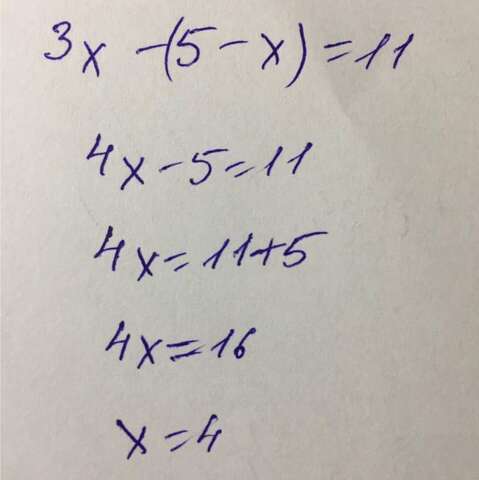 3x -(5-x)=11
4x-5=11
4x=11+5
4x=16
x=4